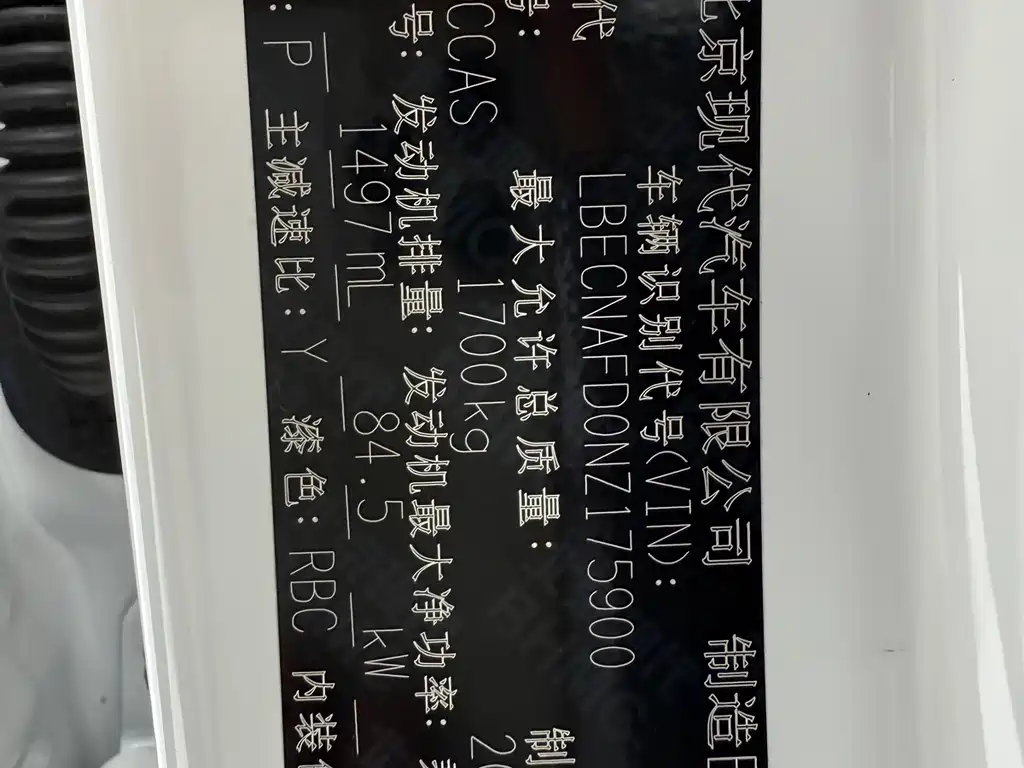 北京现代汽车有限公司 制造
代 车辆识别代号(VIN):
LBECNAFD0NZ175900
号: 最大允许总质量: 制
CCAS 1700kg
号: 发动机排量: 发动机最大净功率:
1497mL 84.5 kW
: P 主减速比: Y 漆色: RBC 内装